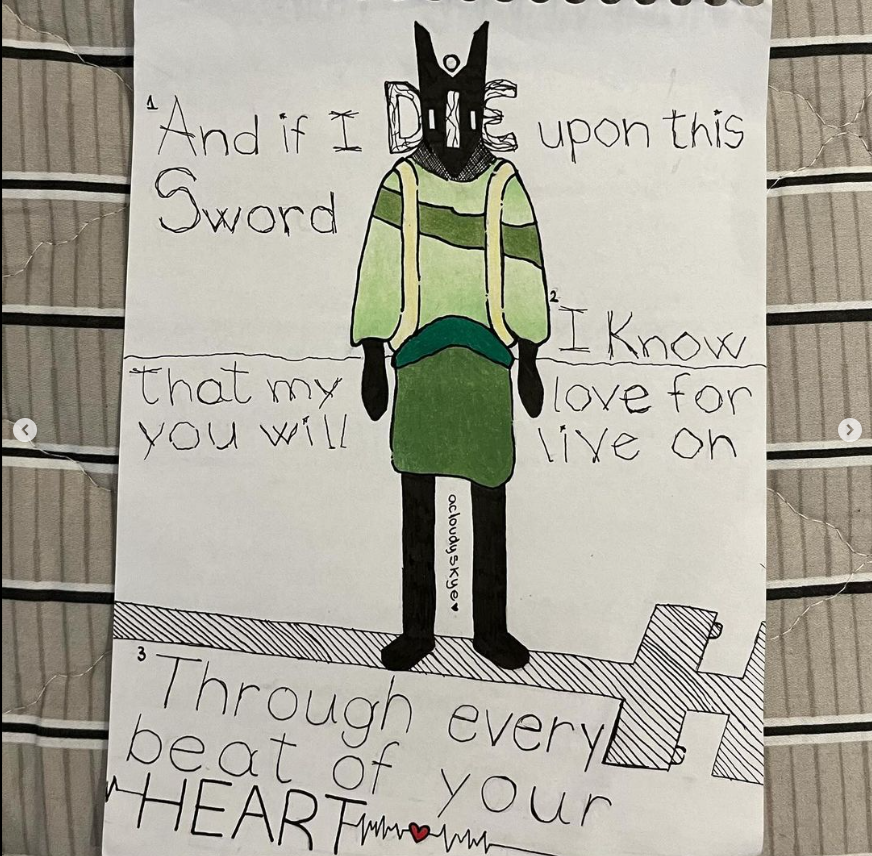 1 And if I DIE upon this
Sword
2 I Know
that my love for
you will live on
acloudyskye
3 Through every
beat of your
HEART